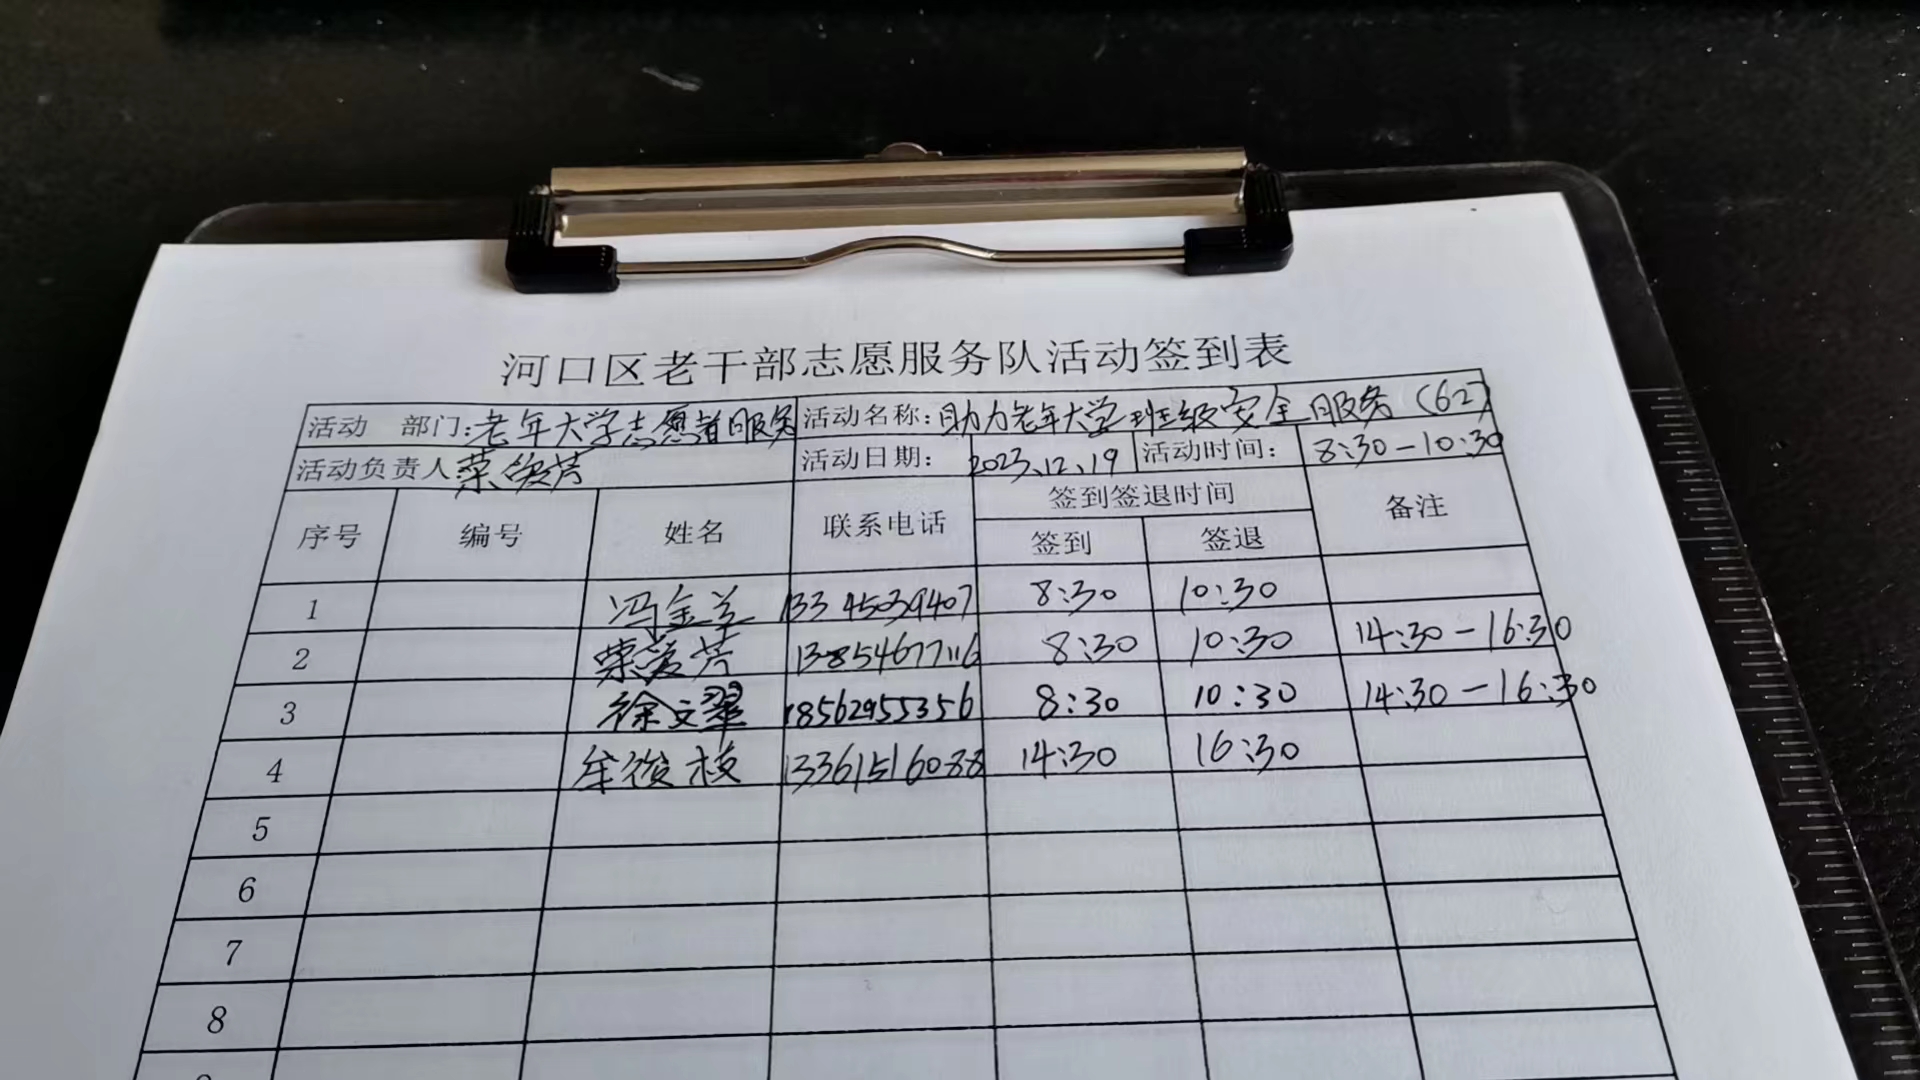 河口区老干部志愿服务队活动签到表
活动 部门:老年大学志愿者服务 活动名称:助力老年大学班级安全服务(62)
活动负责人 荣爱芳 活动日期: 2023.12.19 活动时间: 8:30-10:30
序号 编号 姓名 联系电话 签到签退时间 备注
签到 签退
1 冯金兰 13345039407 8:30 10:30
2 荣爱芳 13854677116 8:30 10:30 14:30-16:30
3 徐文翠 18562955356 8:30 10:30 14:30-16:30
4 牟俊枝 13361516088 14:30 16:30
5
6
7
8